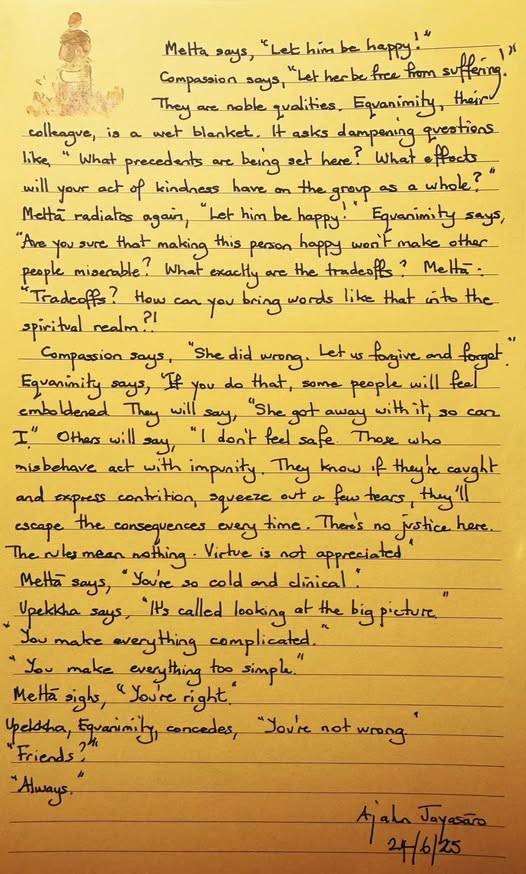 Metta says, "Let him be happy!"
Compassion says, "Let her be free from suffering!"
They are noble qualities. Equanimity, their
colleague, is a wet blanket. It asks dampening questions
like, "What precedents are being set here? What effects
will your act of kindness have on the group as a whole?"
Mettā radiates again, "Let him be happy!" Equanimity says,
"Are you sure that making this person happy won't make other
people miserable? What exactly are the tradeoffs? Mettā:
"Tradeoffs? How can you bring words like that into the
spiritual realm?!
Compassion says, "She did wrong. Let us forgive and forget."
Equanimity says, "If you do that, some people will feel
emboldened. They will say, "She got away with it, so can
I." Others will say, "I don't feel safe. Those who
misbehave act with impunity. They know if they're caught
and express contrition, squeeze out a few tears, they'll
escape the consequences every time. There's no justice here.
The rules mean nothing. Virtue is not appreciated"
Mettā says, "You're so cold and clinical."
Upekkha says, "It's called looking at the big picture."
"You make everything complicated."
"You make everything too simple."
Mettā sighs, "You're right."
Upekkha, Equanimity, concedes, "You're not wrong."
"Friends?"
"Always."
Ajahn Jayasāro
24/6/25